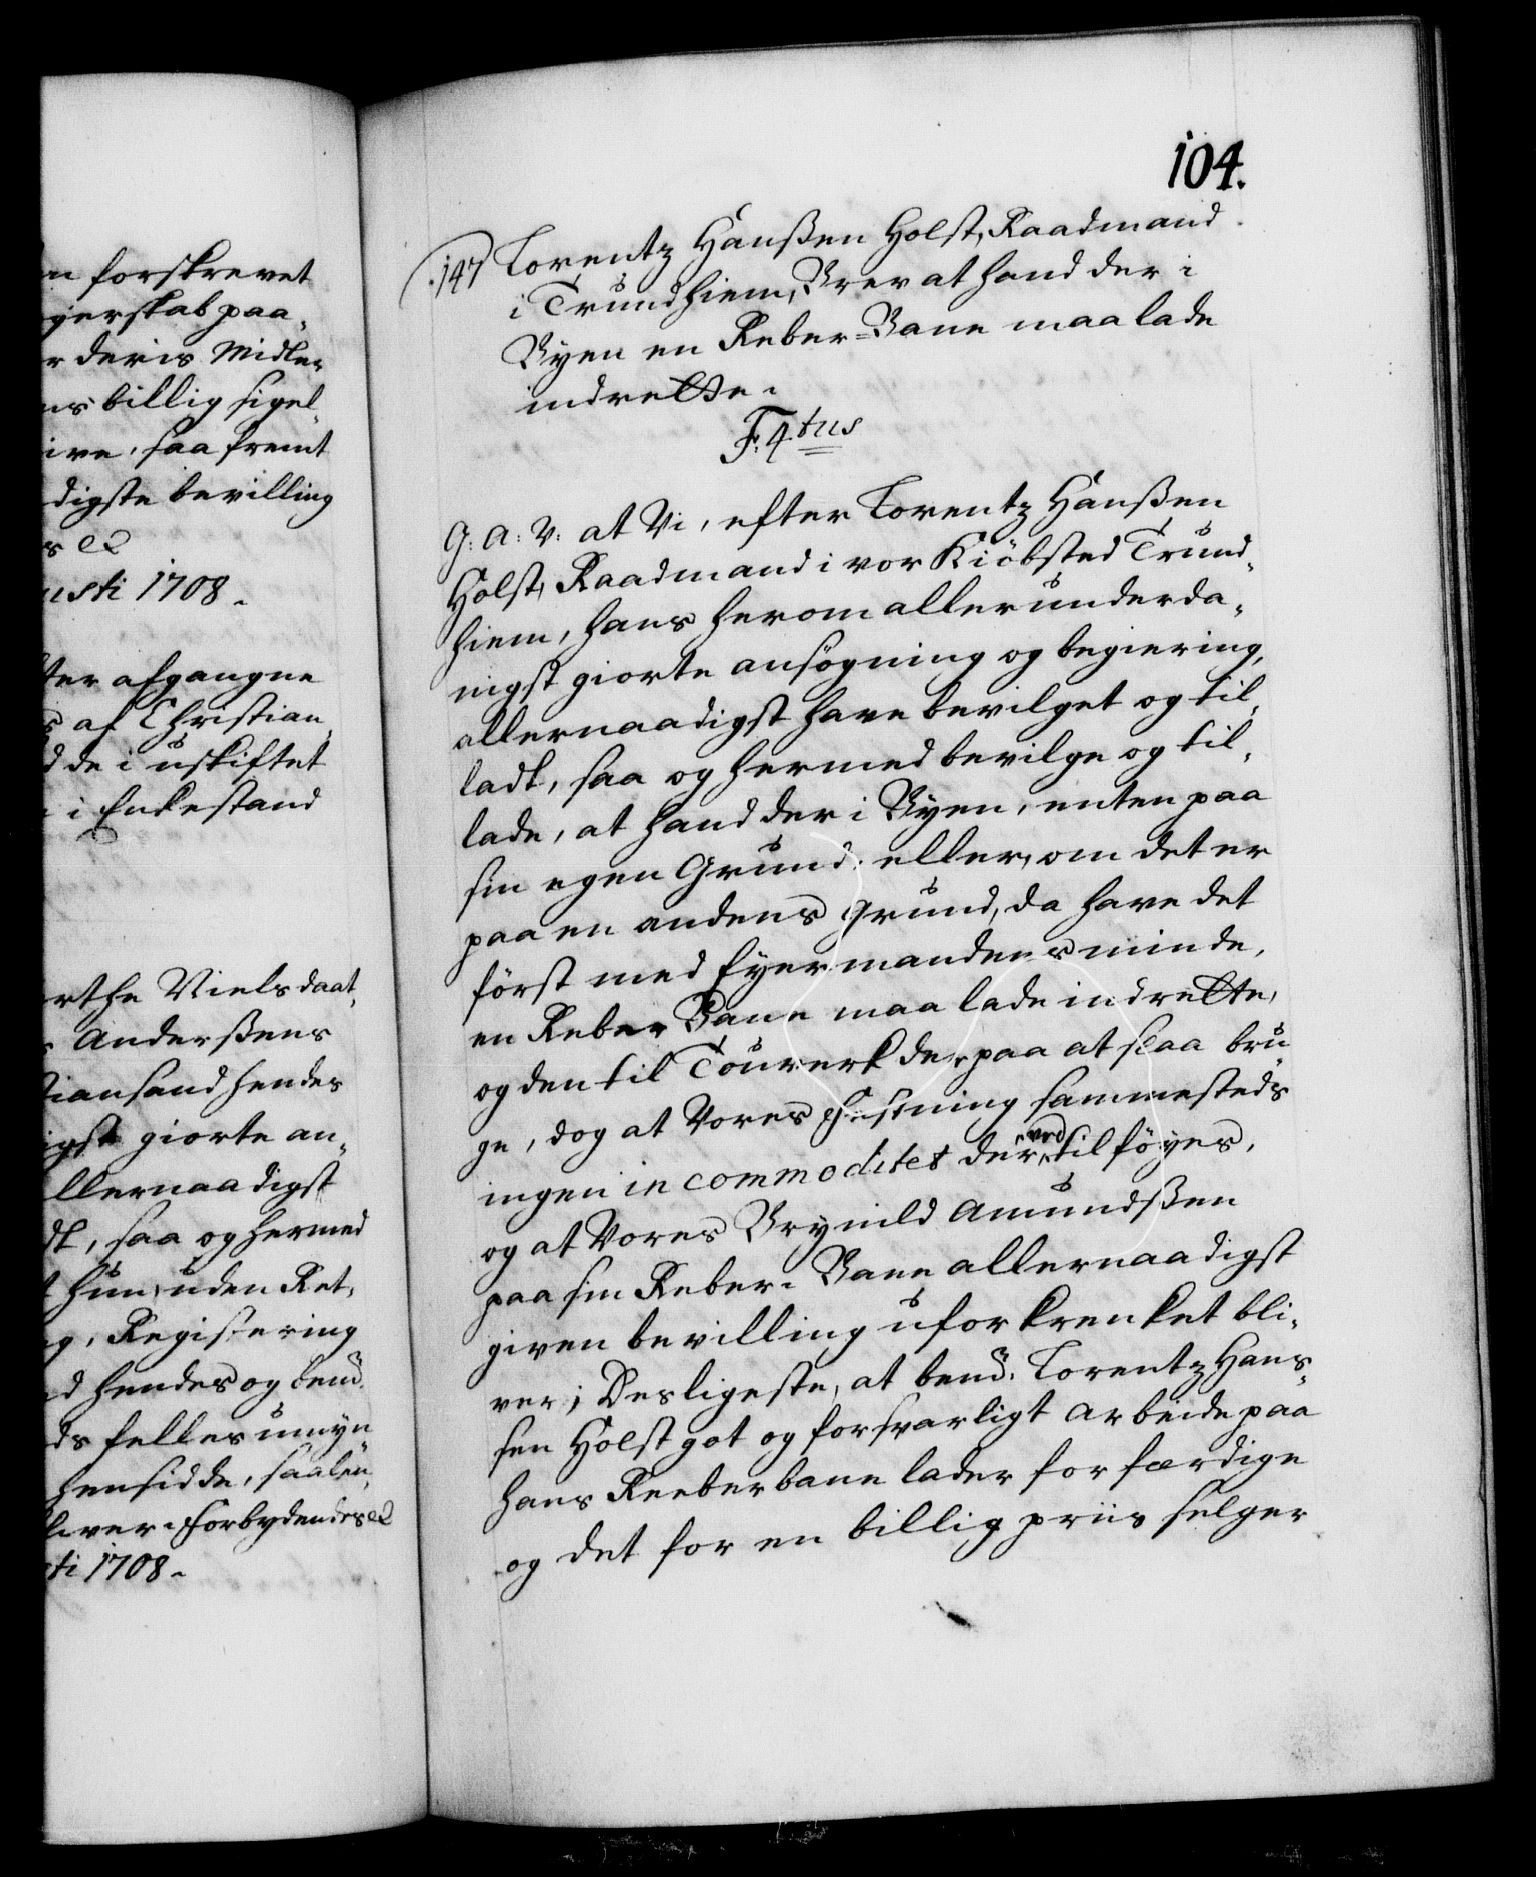 n forskrevet
gerskab paa„
r deris Midler
ns billig sigel„
ive, saa fremt
digste bevilling
usti 1708.
ter afgangne
af Christian„
d de i uskiftet
i Enkestand
rthe Nielsdaat„
Anderßens
tiansand hendes
igst giorte an„
llernaadigst
dt, saa og hermed
t hun, uden Ret„
g, Registering
d hendes og bem.t
ds felles umyn
hensidde, saalen„
liver. Forbydendes etc
sti 1708.
104.
147 Lorentz Hanßen Holst, Raadmand
i Trundhiem, Brev at hand der i
Byen en Reber=Bane maa lade
indrette.
F. 4.tus
G: A: V: at Vi, efter Lorentz Hanßen
Holst, Raadmand i vor Kiöbsted Trund„
hiem, hans herom allerunderda„
nigst giorte ansögning og begiering,
allernaadigst have bevilget og til„
ladt, saa og hermed bevilge og til„
lade, at hand der i Byen, enten paa
sin egen Grund, eller, om det er
paa en andens grund, da have det
först med Eyermandens minde,
en Reber Bane maa lade indrette,
og den til Touverk der paa at slaa bru
ge, dog at Vores Festning sammesteds
ingen incommoditet der ved tilföyes,
og at Vores Brynild Amundßen
paa sin Reber-Bane allernaadigst
given bevilling uforkrenket bli„
ver; Desligeste, at bem.t Lorentz Hans„
sen Holst got og forsvarligt arbeide paa
hans Reeberbane lader forfærdige
og det for en billig priis selger